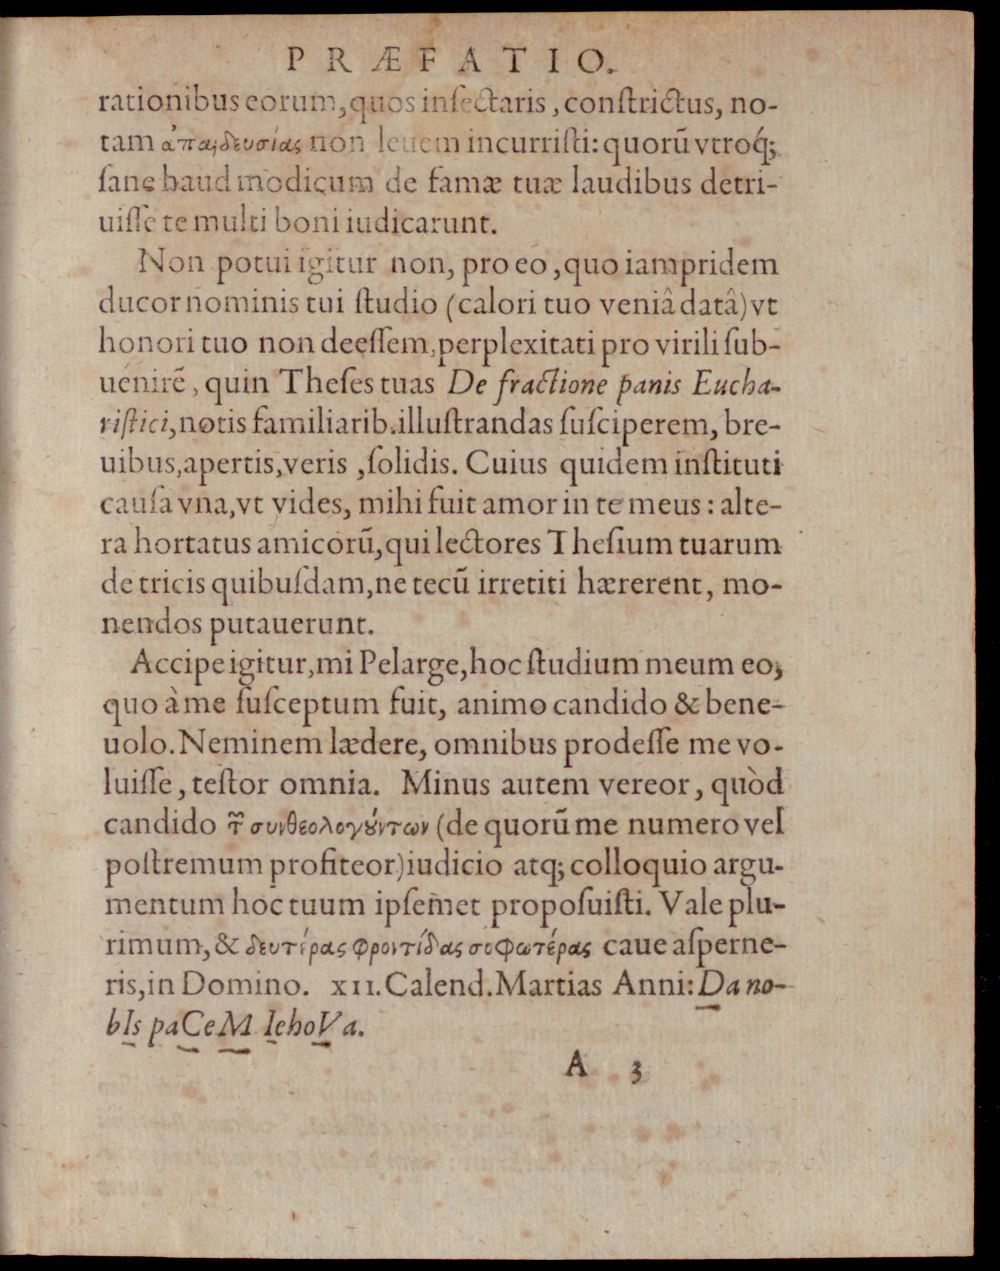 PRÆFATIO.
rationibus eorum, quos insectaris, constrictus, no-
tam ἀπαιδευσίας non leuem incurristi: quorũ vtroq́;
sane haud modicum de famæ tuæ laudibus detri-
uisse te multi boni iudicarunt.
Non potui igitur non, pro eo, quo iampridem
ducor nominis tui studio (calori tuo veniâ datâ) vt
honori tuo non deessem, perplexitati pro virili sub-
uenirẽ, quin Theses tuas De fractione panis Eucha-
ristici, notis familiarib. illustrandas susciperem, bre-
uibus, apertis, veris, solidis. Cuius quidem instituti
causa vna, vt vides, mihi fuit amor in te meus: alte-
ra hortatus amicorũ, qui lectores Thesium tuarum
de tricis quibusdam, ne tecũ irretiti hærerent, mo-
nendos putauerunt.
Accipe igitur, mi Pelarge, hoc studium meum eo,
quo à me susceptum fuit, animo candido & bene-
uolo. Neminem lædere, omnibus prodesse me vo-
luisse, testor omnia. Minus autem vereor, quòd
candido τῶν συνθεολογούντων (de quorũ me numero vel
postremum profiteor) iudicio atq; colloquio argu-
mentum hoc tuum ipsemet proposuisti. Vale plu-
rimum, & δευτέρας φροντίδας σοφωτέρας caue asperne-
ris, in Domino. XII. Calend. Martias Anni: Da no-
bIs paCeM IehoVa.
A 3